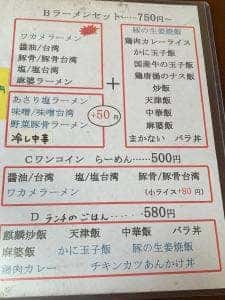 Bラーメンセット……750円~
ワカメラーメン
醤油/台湾
豚骨/豚骨台湾
塩/塩台湾
麻婆ラーメン
あさり塩ラーメン
味噌/味噌台湾
野菜豚骨ラーメン
冷し中華
+50円
+
豚の生姜焼飯
鶏肉カレーライス
かに玉子飯
国産牛の玉子飯
鶏唐揚のナス飯
炒飯
天津飯
中華飯
麻婆飯
まかない バラ丼
Cワンコイン らーめん……500円
醤油/台湾 塩/台湾 豚骨/台湾
ワカメラーメン (小ライス+80円)
D ランチのごはん……580円
麒麟炒飯 天津飯 中華飯 バラ丼
麻婆飯 かに玉子飯 豚の生姜焼飯
鶏肉カレー チキンカツあんかけ丼